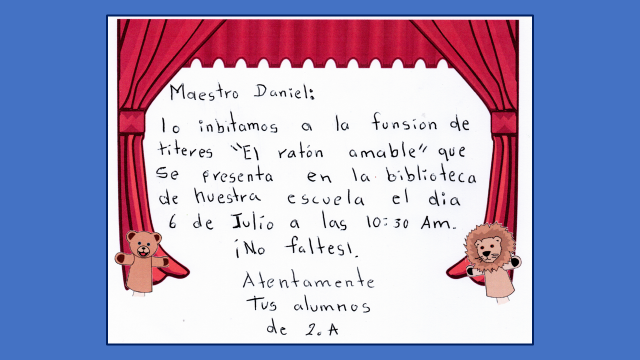 Maestro Daniel:
lo inbitamos a la funsión de
titeres "El ratón amable" que
se presenta en la biblioteca
de nuestra escuela el dia
6 de Julio a las 10:30 Am.
¡No faltes!.
Atentamente
Tus alumnos
de 2.A